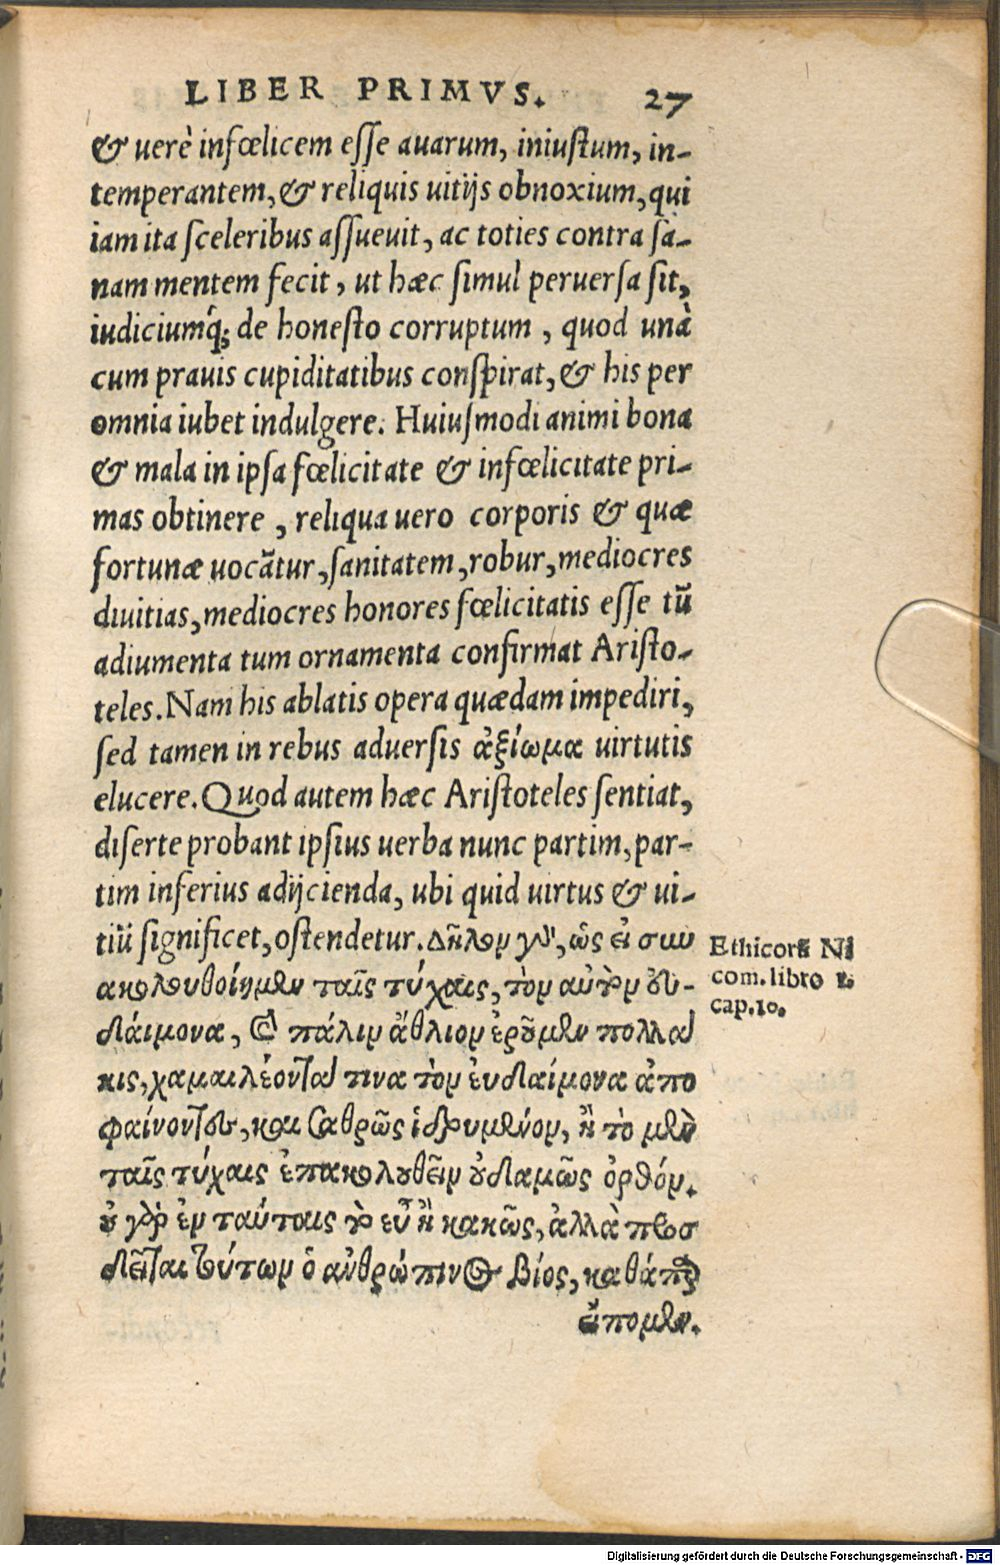 LIBER PRIMVS. 27
& uerè infœlicem esse auarum, iniustum, in-
temperantem, & reliquis uitijs obnoxium, qui
iam ita sceleribus assueuit, ac toties contra sa-
nam mentem fecit, ut hæc simul peruersa sit,
iudiciumq́; de honesto corruptum, quod unà
cum prauis cupiditatibus conspirat, & his per
omnia iubet indulgere. Huiusmodi animi bona
& mala in ipsa fœlicitate & infœlicitate pri-
mas obtinere, reliqua uero corporis & quæ
fortunæ uocãtur, sanitatem, robur, mediocres
diuitias, mediocres honores fœlicitatis esse tũ
adiumenta tum ornamenta confirmat Aristo-
teles. Nam his ablatis opera quædam impediri,
sed tamen in rebus aduersis ἀξίωμα uirtutis
elucere. Quod autem hæc Aristoteles sentiat,
diserte probant ipsius uerba nunc partim, par-
tim inferius adijcienda, ubi quid uirtus & ui-
tiũ significet, ostendetur. Δῆλον γὰρ, ὡς εἰ συν
ακολουθοίημεν ταῖς τύχαις, τὸν αὐτὸν ἐυ-
δάιμονα, καὶ πάλιν ἄθλιον ἐροῦμεν πολλά
κις, χαμαιλέοντά τινα τὸν ἐυδαίμονα ἀπο
φαίνοντες, και σαθρῶς ἱδρυμένον, ἢ τὸ μὲν
ταῖς τύχαις ἐπακολουθεῖν ουδαμῶς ὀρθόν.
ου γὰρ ἐν ταύταις τὸ εὖ ἢ κακῶς, ἀλλὰ προσ
δεῖται τούτων ὁ ἀνθρώπινος βίος, καθάπερ
ἔιπομεν.
Ethicorũ Ni
com. libro 1.
cap. 10.
Digitalisierung gefördert durch die Deutsche Forschungsgemeinschaft - DFG